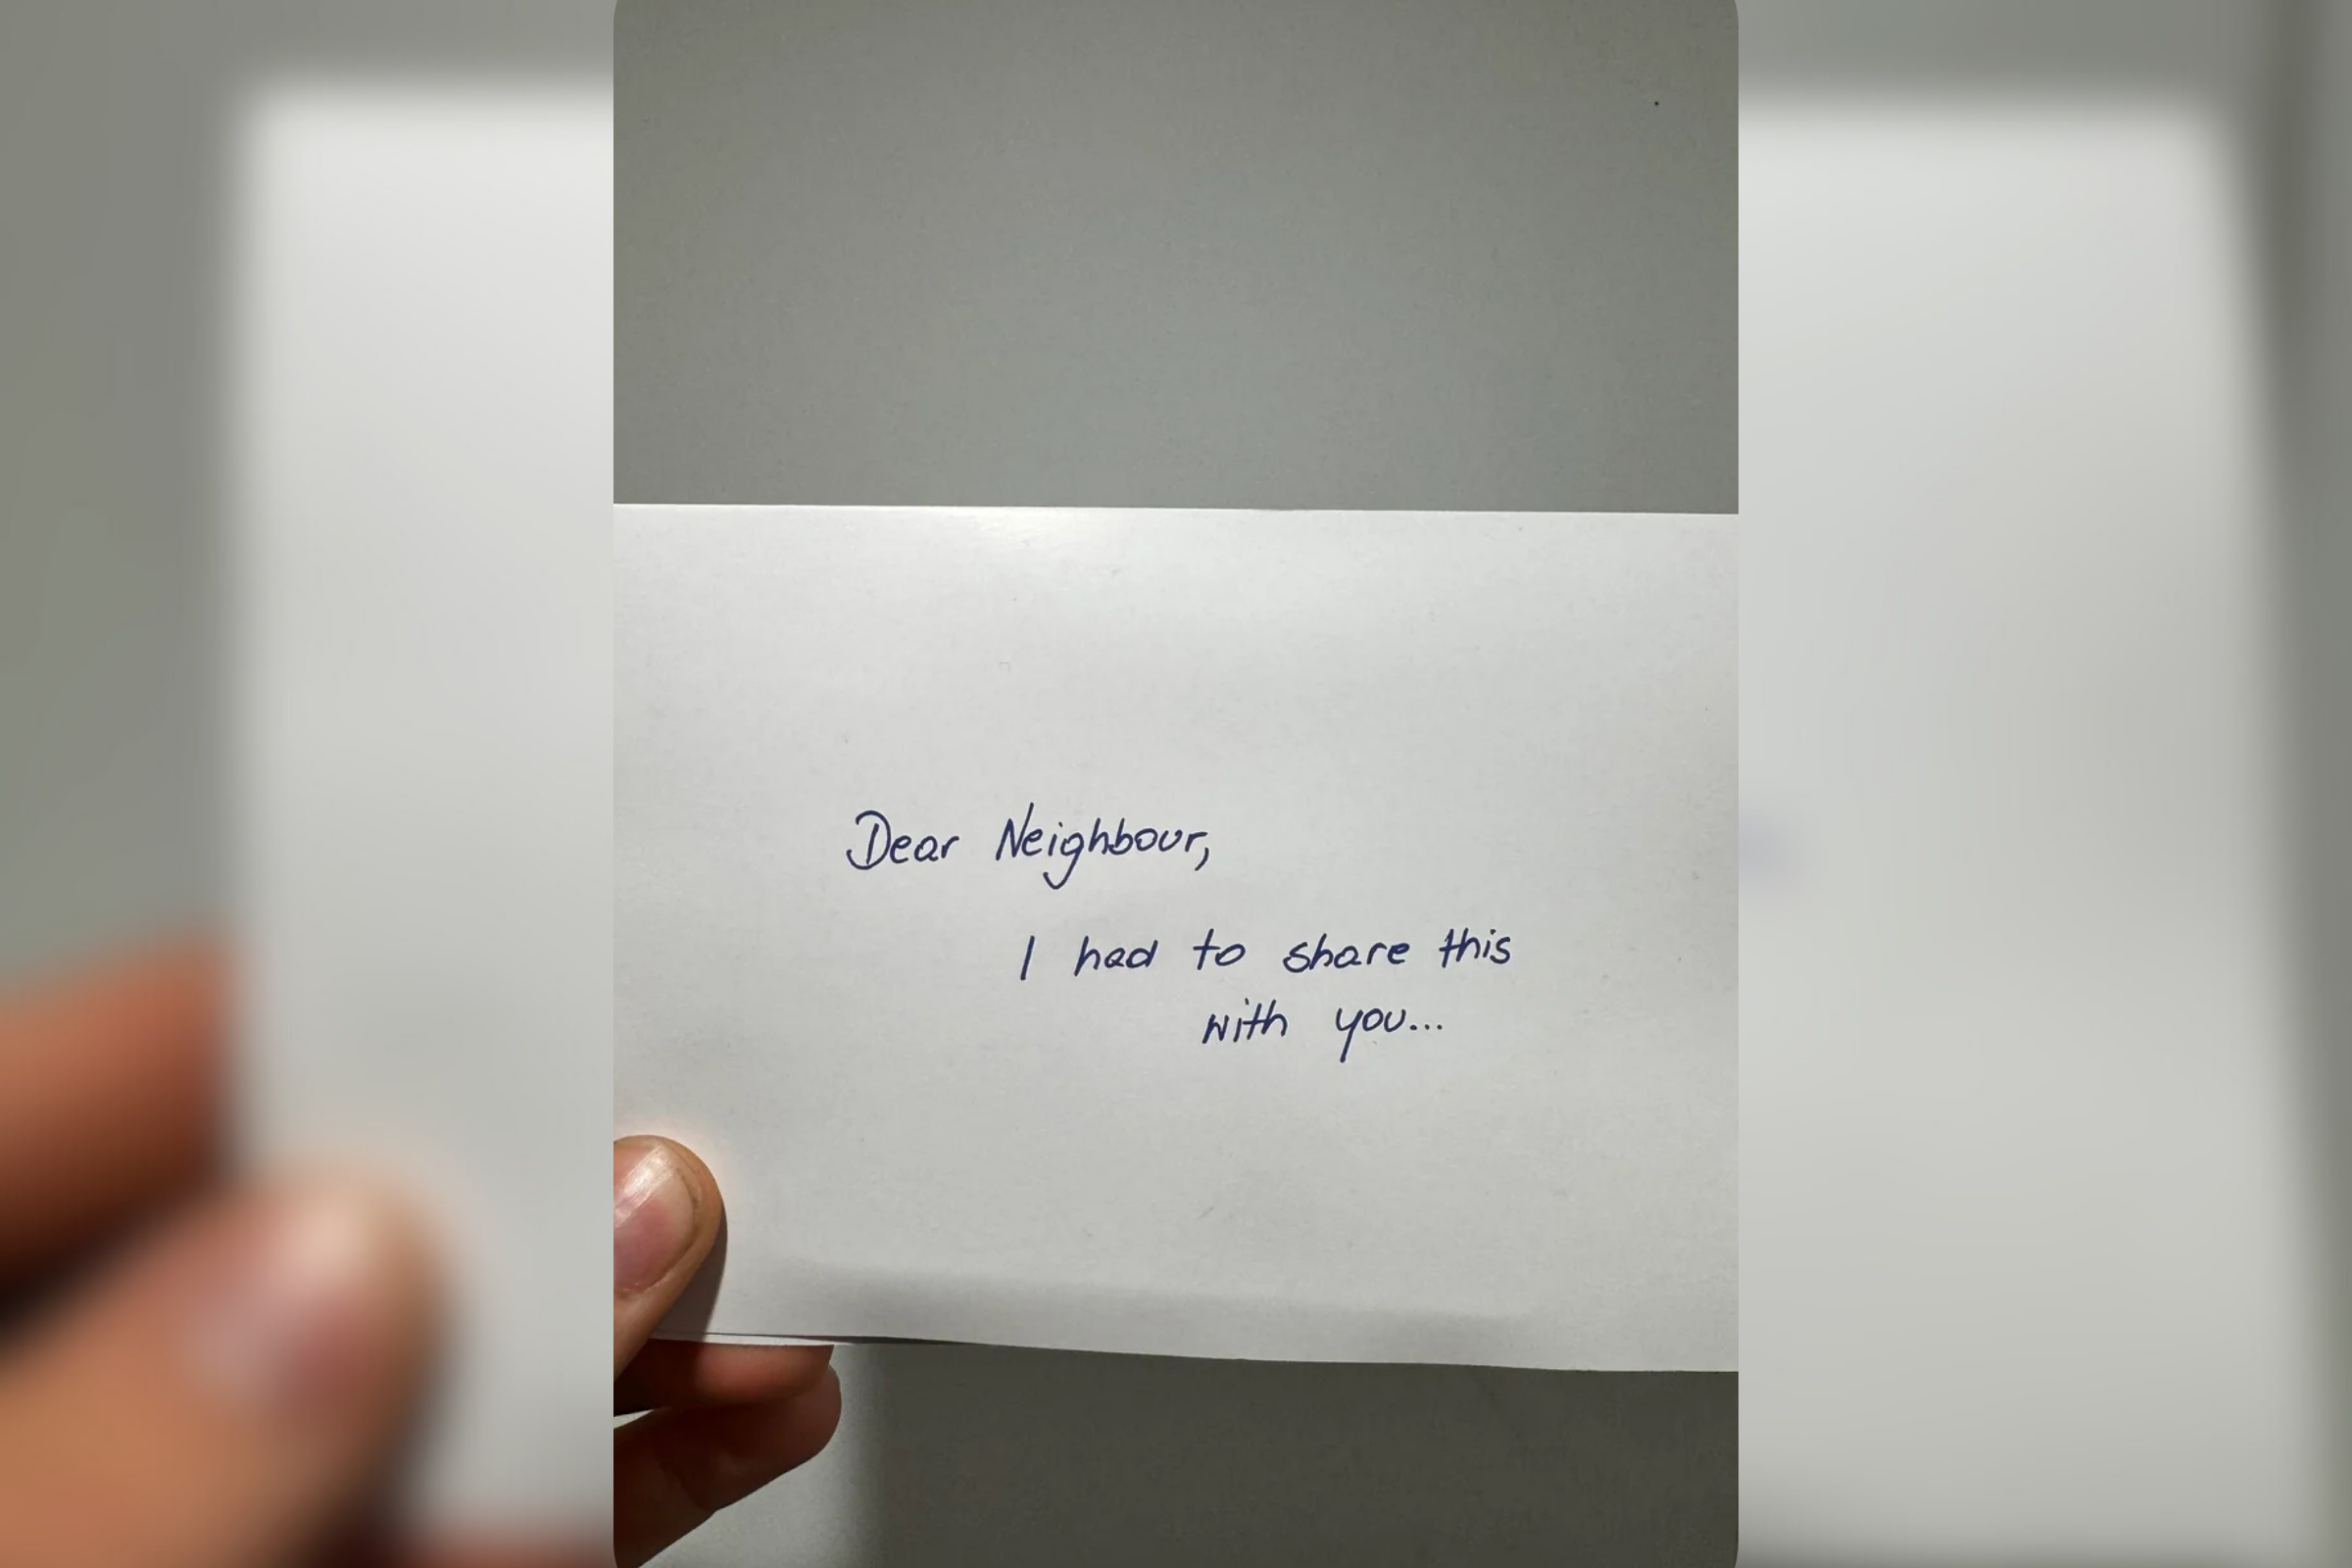 Dear Neighbour,
I had to share this
with you...